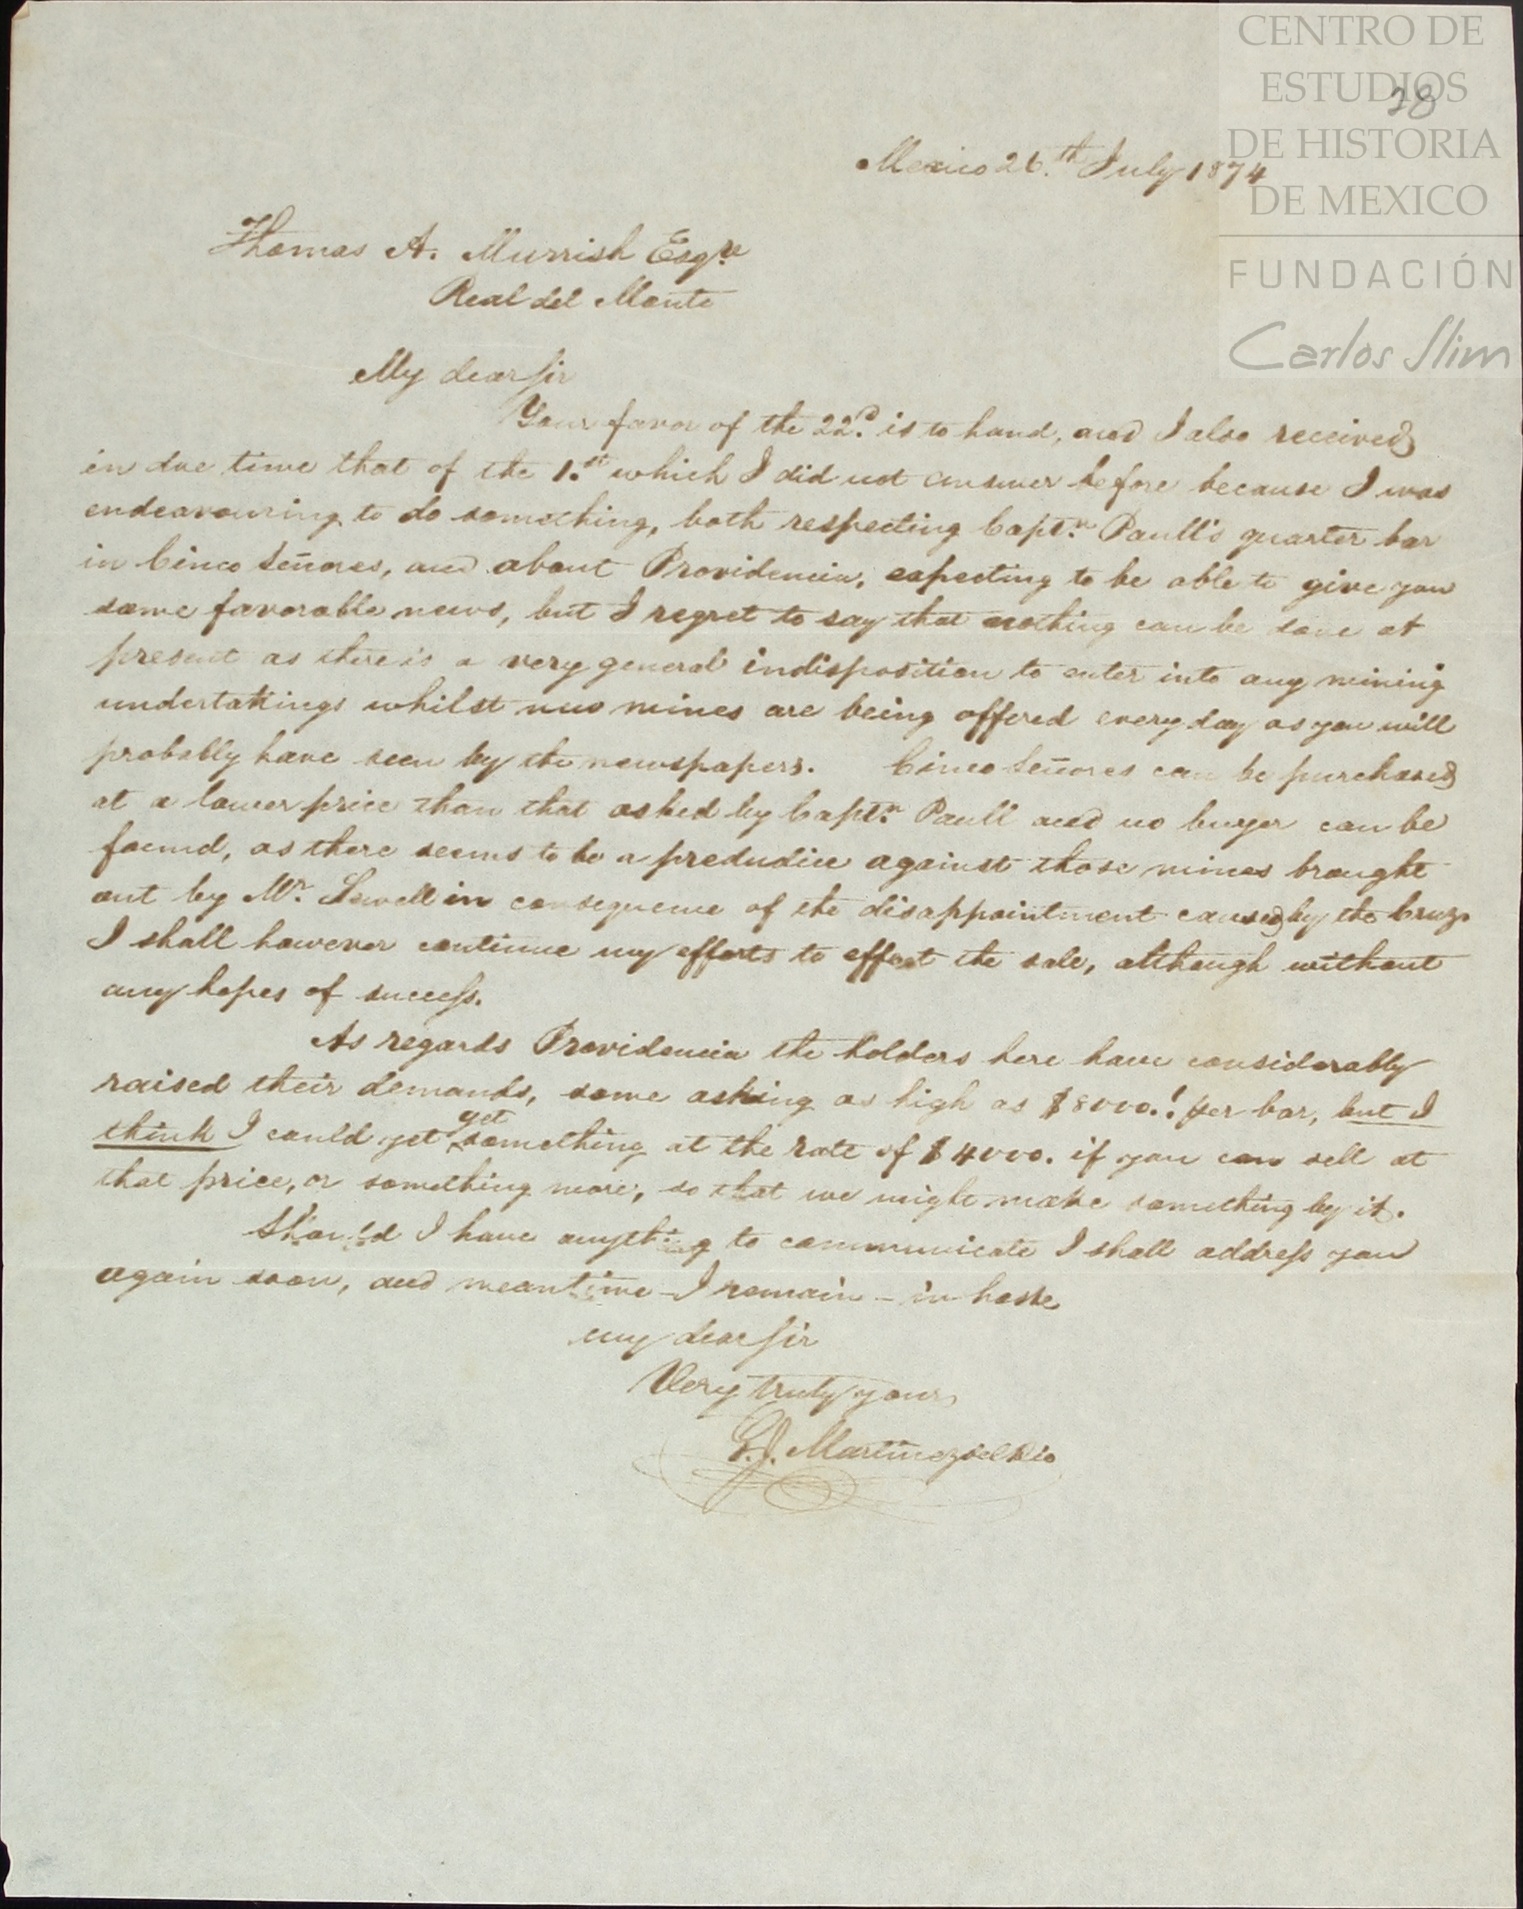 CENTRO DE
ESTUDIOS
DE HISTORIA
DE MEXICO
FUNDACIÓN
Carlos Slim
28
Mexico 26.th July 1874
Thomas A. Murrish Esqre
Real del Monte
My dear Sir
Your favor of the 22d. is to hand, and I also received
in due time that of the 1.st which I did not answer before because I was
endeavouring to do something, both respecting Captn. Paull's quarter bar
in Cinco Señores, and about Providencia, expecting to be able to give you
some favorable news, but I regret to say that nothing can be done at
present as there is a very general indisposition to enter into any mining
undertakings whilst new mines are being offered every day as you will
probably have seen by the newspapers. Cinco Señores can be purchased
at a lower price than that asked by Captn. Paull and no buyer can be
found, as there seems to be a predudice against those mines brought
out by Mr. Sewell in consequence of the disappointment caused by the Cruz.
I shall however continue my efforts to effect the sale, although without
any hopes of success.
As regards Providencia the holders here have considerably
raised their demands, some asking as high as $8000.! per bar, but I
think I could yet get something at the rate of $4000. if you can sell at
that price, or something more, so that we might make something by it.
Should I have anything to communicate I shall address you
again soon, and meantime - I remain - in haste
my dear Sir
Very truly yours
Martinez del Rio